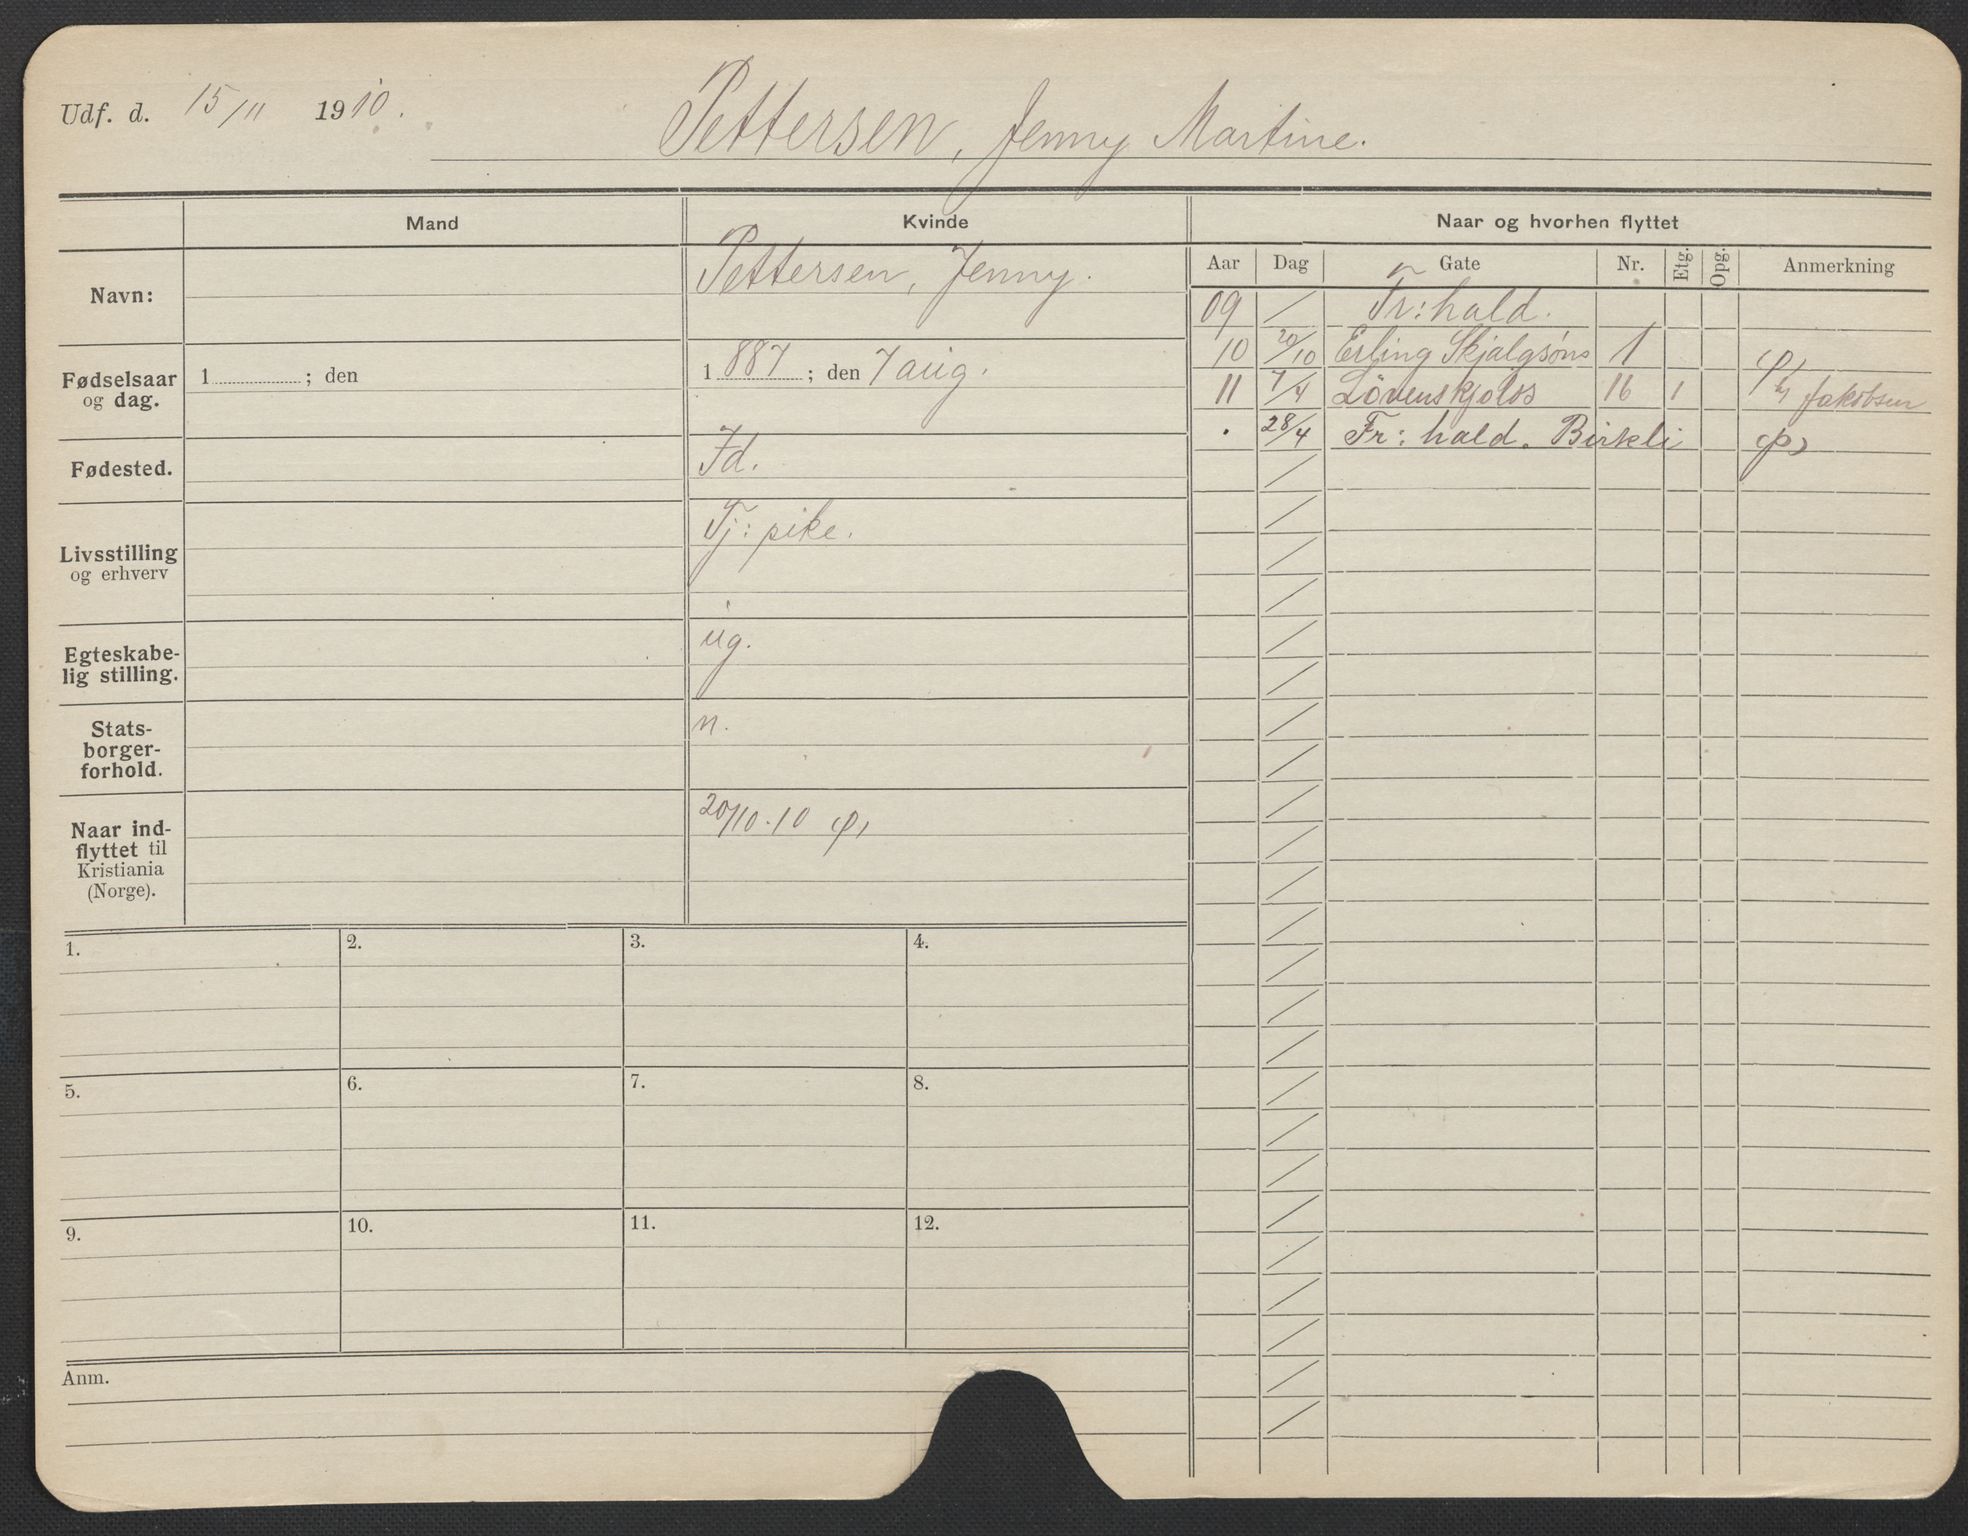 Udf. d. 15/11 1910.
Pettersen, Jenny Martine.
Mand
Kvinde
Naar og hvorhen flyttet
Navn:
Pettersen, Jenny.
Fødselsaar og dag.
1 ; den
1887 ; den 7 aug.
Fødested.
Id.
Livsstilling og erhverv
Tj: pike.
Egteskabe-
lig stilling.
ug.
Stats-
borger-
forhold.
n.
Naar ind-
flyttet til
Kristiania
(Norge).
20/10.10
Aar Dag Gate Nr. Etg. Opg. Anmerkning
09 / Fr:hald.
10 20/10 Erling Skjalgsøns 1
11 7/4 Lövenskjolds 16 1 Jakobsen
. 28/4 Fr: hald. Birkli
1. 2. 3. 4.
5. 6. 7. 8.
9. 10. 11. 12.
Anm.